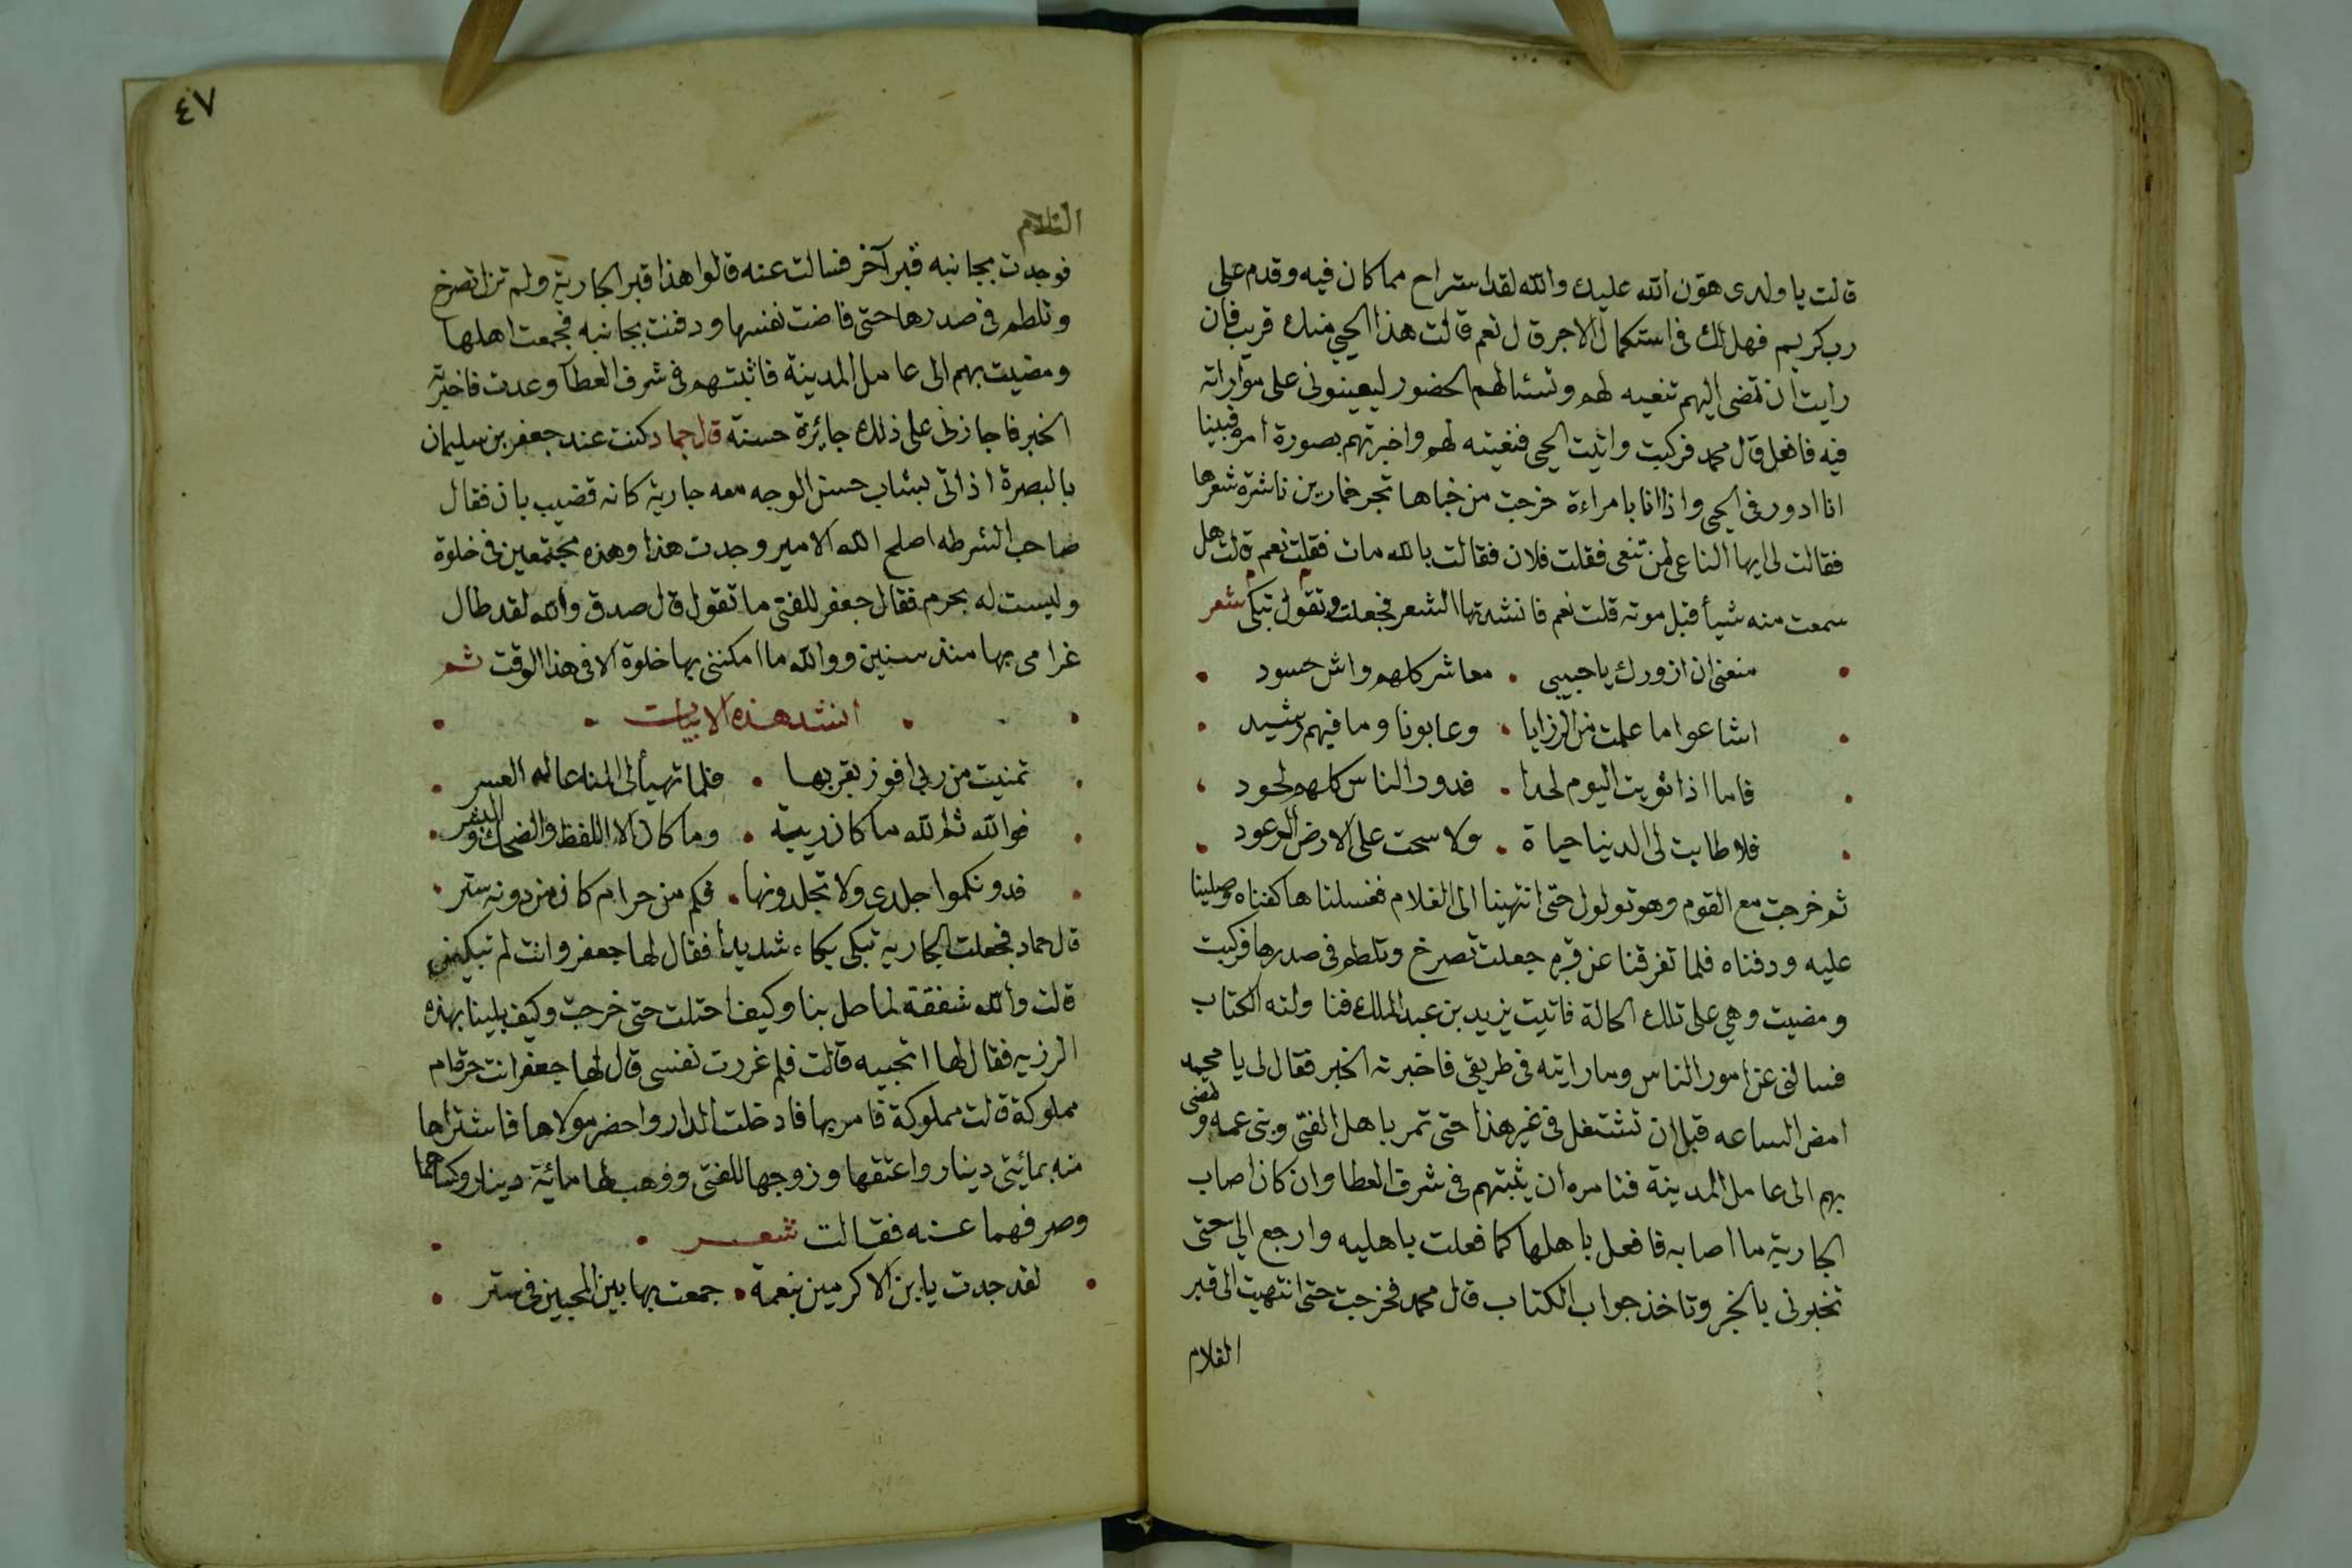 قالت يا ولدى هوّن الله عليك والله لقد استراح مما كان فيه وقدم على
رب كريم فهل لك فى استكمال الاجر قال نعم قالت هذا الحي منك قريب فان
رايت ان تمضى اليهم تنعيه لهم وتسئالهم الحضور ليعينونى على مواراته
فيه فافعل قال محمد فركبت واتيت الحى فنعيته لهم واخبرتهم بصورة امره فبينا
انا ادور فى الحى واذا انا بامراءة خرجت من خباها تجر خمارين ناشرة شعرها
فقالت لى ايها الناعى لمن تنعى فقلت فلان فقالت بالله مات فقلت نعم قالت هل
سمعت منه شيأ قبل موته قلت نعم فانشدتها الشعر فجعلت وتقول تبكى شعر
منعنى ان ازورك يا حبيبى • معاشر كلهم واش حسود
اشاعوا ما علمت من الرزايا • وعابونا وما فيهم رشيد
فاما اذا ثويت اليوم لحدا • فدور الناس كلهم لحود
فلا طابت لى الدنيا حياة • ولا سحت على الارض الرعود
ثم خرجت مع القوم وهو تولول حتى انتهينا الى الغلام فغسلناها كفناه وصلينا
عليه ودفناه فلما تفرقنا عن قبره جعلت تصرخ وتلطم فى صدرها فركبت
ومضيت وهي على تلك الحالة فاتيت يزيد بن عبد الملك فنا ولته الكتاب
فسالنى عن امور الناس وما رايته فى طريقى فاخبرته الخبر فقال لى يا محمد
امض الساعه قبل ان تشتغل فى غير هذا حتى تمر باهل الفتى وبنى عمه وتمضى
بهم الى عامل المدينة فتامره ان يثبتهم فى شرف العطا وان كان اصاب
الجارية ما اصابه فافعل باهلها كما فعلت باهليه وارجع الي حتى
تخبرنى بالخبر وتاخذ جواب الكتاب قال محمد فخرجت حتى انتهيت الى قبر
الغلام
٤٧
فوجدت بجانبه قبر آخر فسالت عنه قالوا هذا قبر الجارية ولم تزل تصرخ
وتلطم فى صدرها حتى فاضت نفسها ودفنت بجانبه فجمعت اهلها
ومضيت بهم الى عامل المدينة فاثبتهم فى شرف العطآ وعدت فاخبرته
الخبر فاجازنى على ذلك جايزة حسنة قال حماد كنت عند جعفر بن سليمان
بالبصرة اذ اتى بشاب حسن الوجه معه جارية كانه قضيب بان فقال
صاحب الشرطه اصلح الله الامير وجدت هذا وهذه مجتمعين فى خلوة
وليست له بحرم فقال جعفر للفتى ما تقول قال صدق والله لقد طال
غرامى بها منذ سنين ووالله ما امكننى بها خلوة الا فى هذا الوقت ثم
انشد هذه الابيات
تمنيت من ربى افوز بقربها • فلما تهيأ لى المنا عاله العسر
فوالله ثم لله ما كان ريبة • وما كان الا اللفظ والضحك والبشر
فدونكموا جلدى ولا تجلدونها • فكم من حرام كان من دونه ستر
قال حماد فجعلت الجاريه تبكى بكاء شديدأ فقال لها جعفر وانت لم تبكين
قالت والله شفقة لما حل بنا وكيف احتلت حتى خرجت وكيف بلينا بهذه
الرزيه فقال لها اتحبيه قالت فلم غررت نفسى قال لها جعفر انت حرة ام
مملوكة قالت مملوكة فامر بها فادخلت الدار واحضر مولاها فاشتراها
منه بمائيتى دينار واعتقها وزوجها للفتى ووهب لهما مائية دينار وكساهما
وصرفهما عنه فقالت شعر
لقد جدت يا بن الاكرمين بنعمة • جمعت بها بين المحبين فى ستر